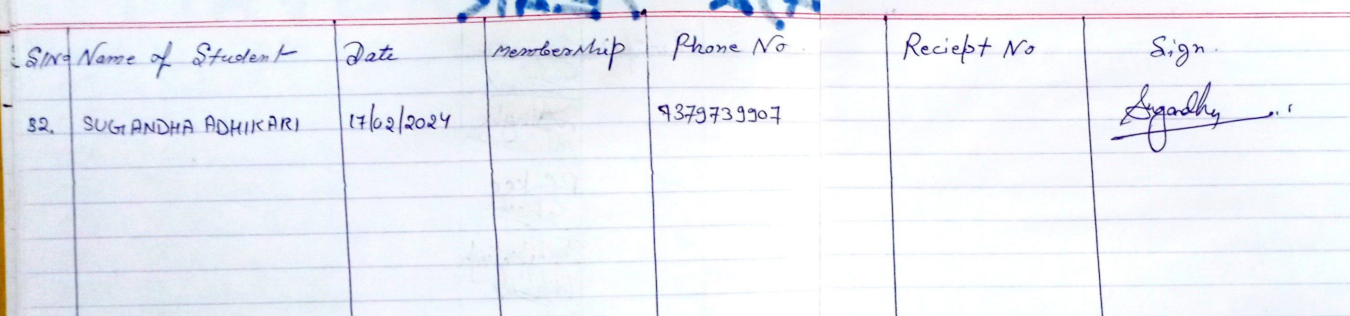 Sl No Name of Student Date Membership Phone No. Reciept No Sign.
32. SUGANDHA ADHIKARI 17/02/2024 9379739907 Sugandha